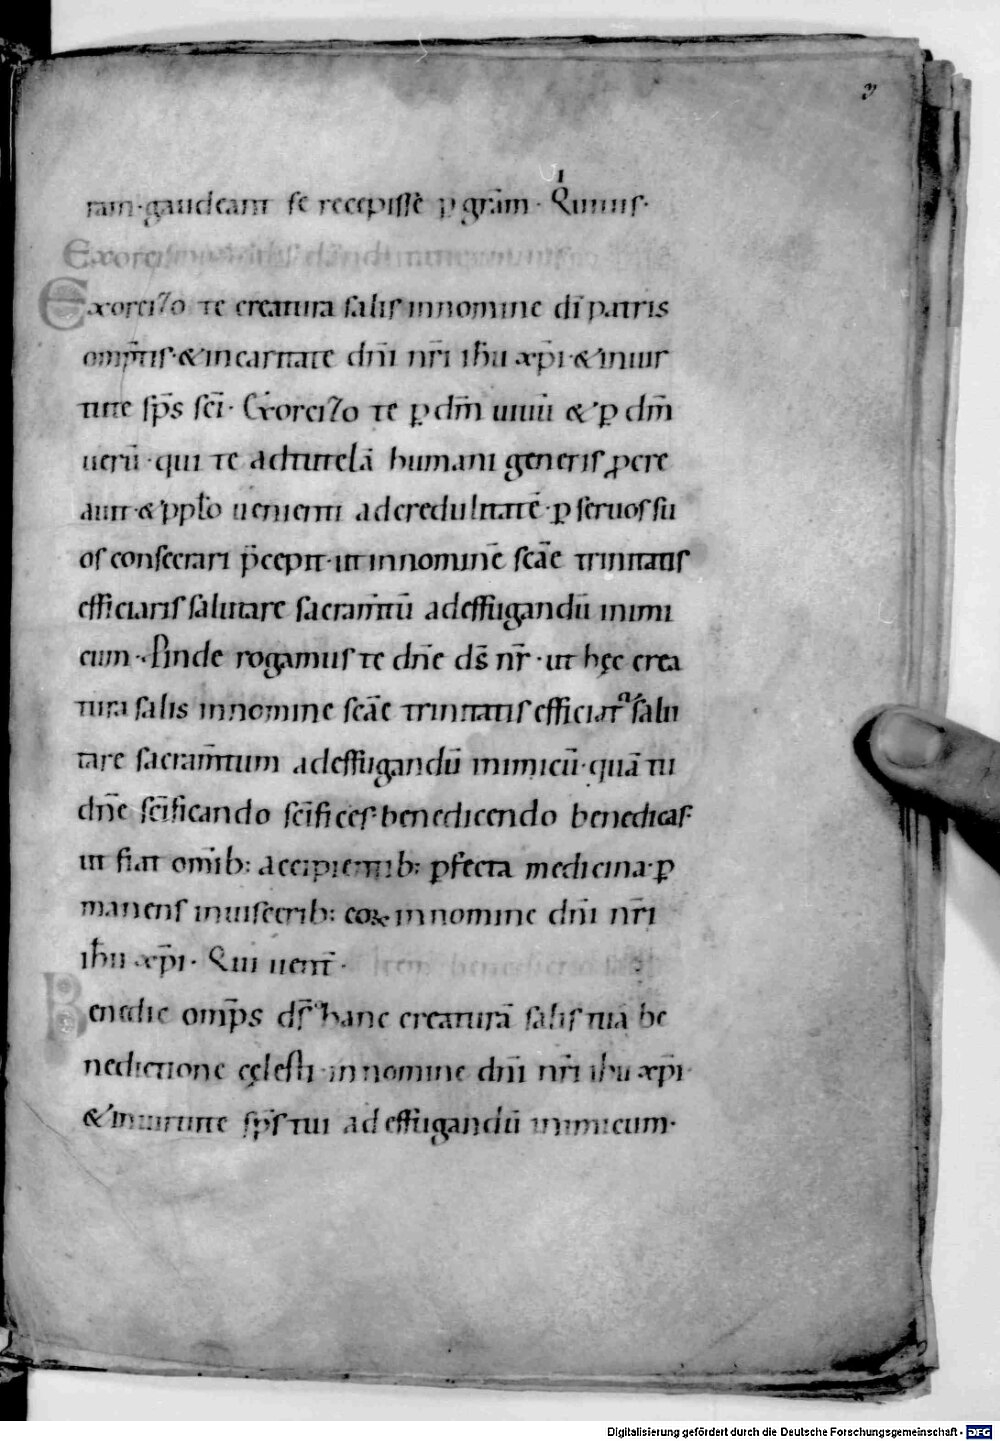 3
ram · gaudeant se recepisse p gr̄am · Qui uiuis ·
Exorcismus salis
Exorcizo te creatura salis innomine dī patris
omp̄tis · & incaritate dn̄i nr̄i ihū xp̄i · & inuir
tute sp̄s sc̄i · Exorcizo te p̱ dm̄ uiuū & p̱ dm̄
uerū · qui te adtutelā humani generis p̱cre
auit · & pplo uenienti adcredulitatē · p̱ seruos su
os consecrari p̄cepit · ut innominē sc̄ae trinitatis
efficiaris salutare sacram̄tū adeffugandū inimi
cum · Proinde rogamus te dn̄e ds̄ nr̄ · ut hęc crea
tura salis innomine sc̄ae trinitatis efficiat̾ salu
tare sacram̄tum adeffugandū inimicū · quā tu
dn̄e sc̄ificando sc̄ifices · benedicendo benedicas ·
ut fiat omīb: accipientib: p̱fecta medicina · p̱
manens inuiscerib: eoꝝ innomine dn̄i nr̄i
ihū xp̄i · Qui uent̄ ·
Benedic omp̄s ds̄ hanc creaturā salis tuā be
nedictione cęlesti · innomine dn̄i nr̄i ihū xp̄i ·
& inuirtute sp̄s tui adeffugandū inimicum ·
Digitalisierung gefördert durch die Deutsche Forschungsgemeinschaft - DFG